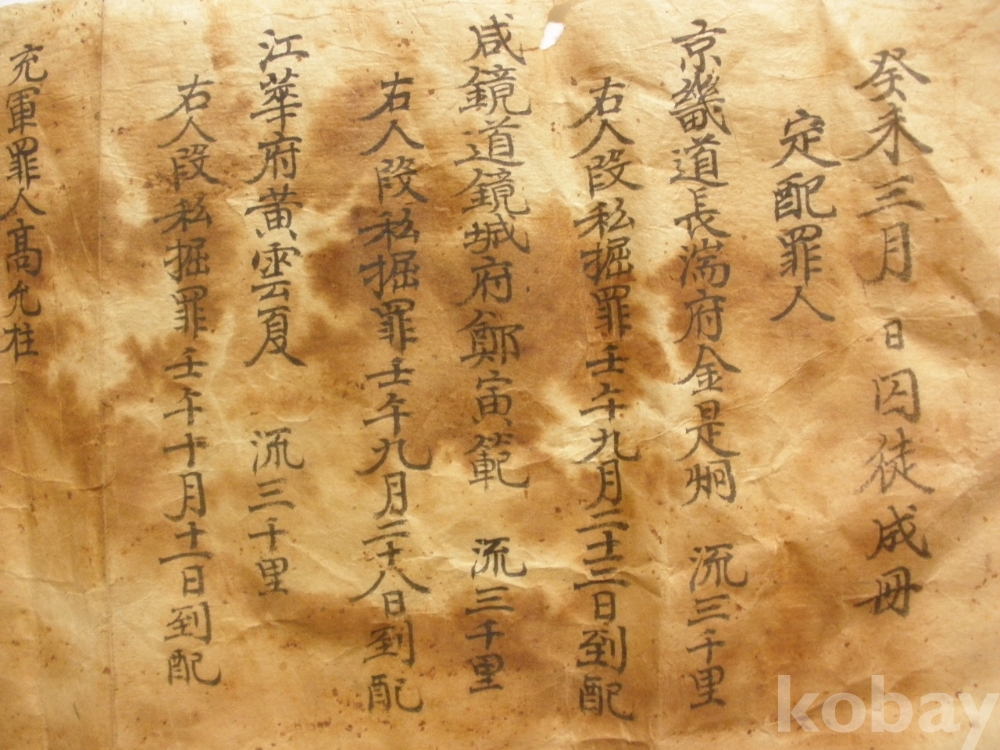 癸未三月 日囚徒成冊
定配罪人
京畿道長湍府金是炯 流三千里
右人段私掘罪壬午九月二十三日到配
咸鏡道鏡城府鄭寅範 流三千里
右人段私掘罪壬午九月二十八日到配
江華府黃雲夏 流三千里
右人段私掘罪壬午十月十一日到配
充軍罪人高允柱
kobay